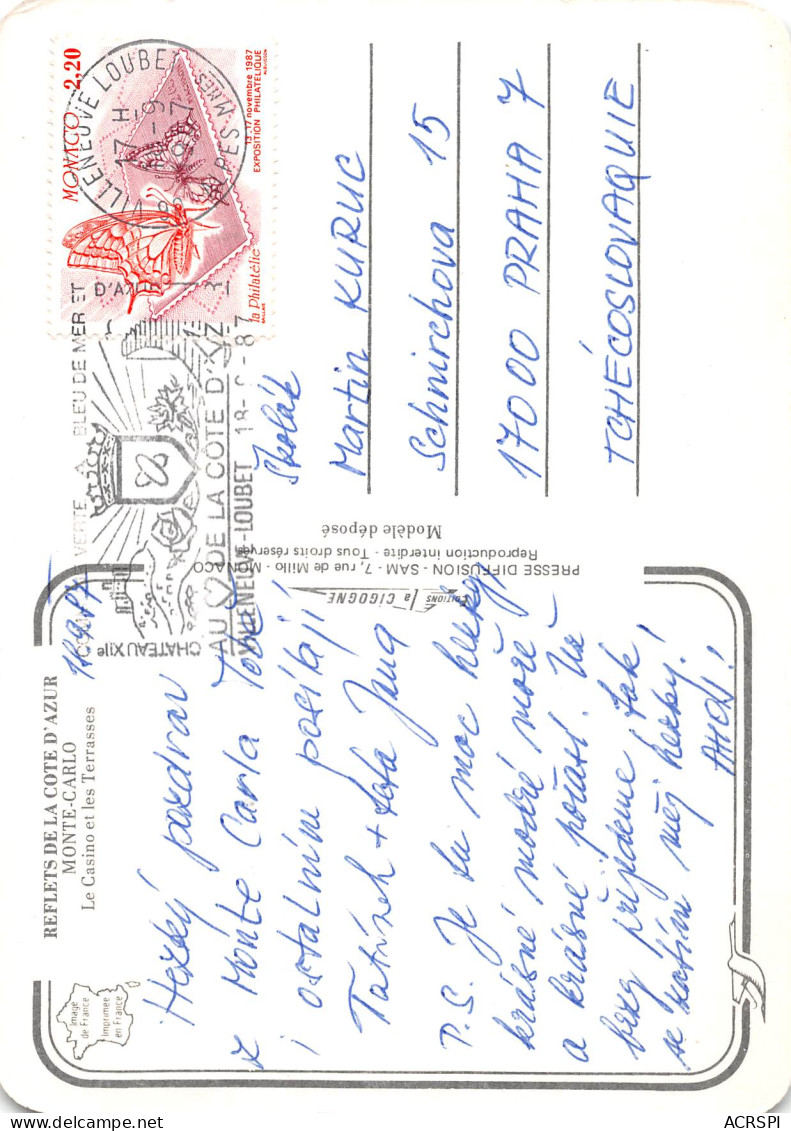 REFLETS DE LA COTE D'AZUR
MONTE-CARLO
Le Casino et les Terrasses
Image
de France
Imprimée
en France
Hezký pozdrav
z Monte Carla Tobě
i ostatním posílají
Tatínek + teta Jana
P.S. Je tu moc hezky,
krásné modré moře
a krásné počasí. Už
brzo přijdeme tak
se zatím měj hezky!
AHOJ!
EDITIONS la CIGOGNE
PRESSE DIFFUSION - SAM - 7, rue de Millo - MONACO
Reproduction interdite - Tous droits réservés
Modèle déposé
VERTE BLEU DE MER ET D'AZUR
CHATEAU XIIe
AU DE LA COTE D'AZ
VILLENEUVE-LOUBET 18-9-87
VILLENEUVE LOUBET
17 H
18-9
ALPES MMES
MONACO 2,20
13_17 novembre 1987
EXPOSITION PHILATELIQUE
la Philatélie
Školák
Martin KURUC
Schnirchova 15
17000 PRAHA 7
TCHÉCOSLOVAQUIE
ACRSPI